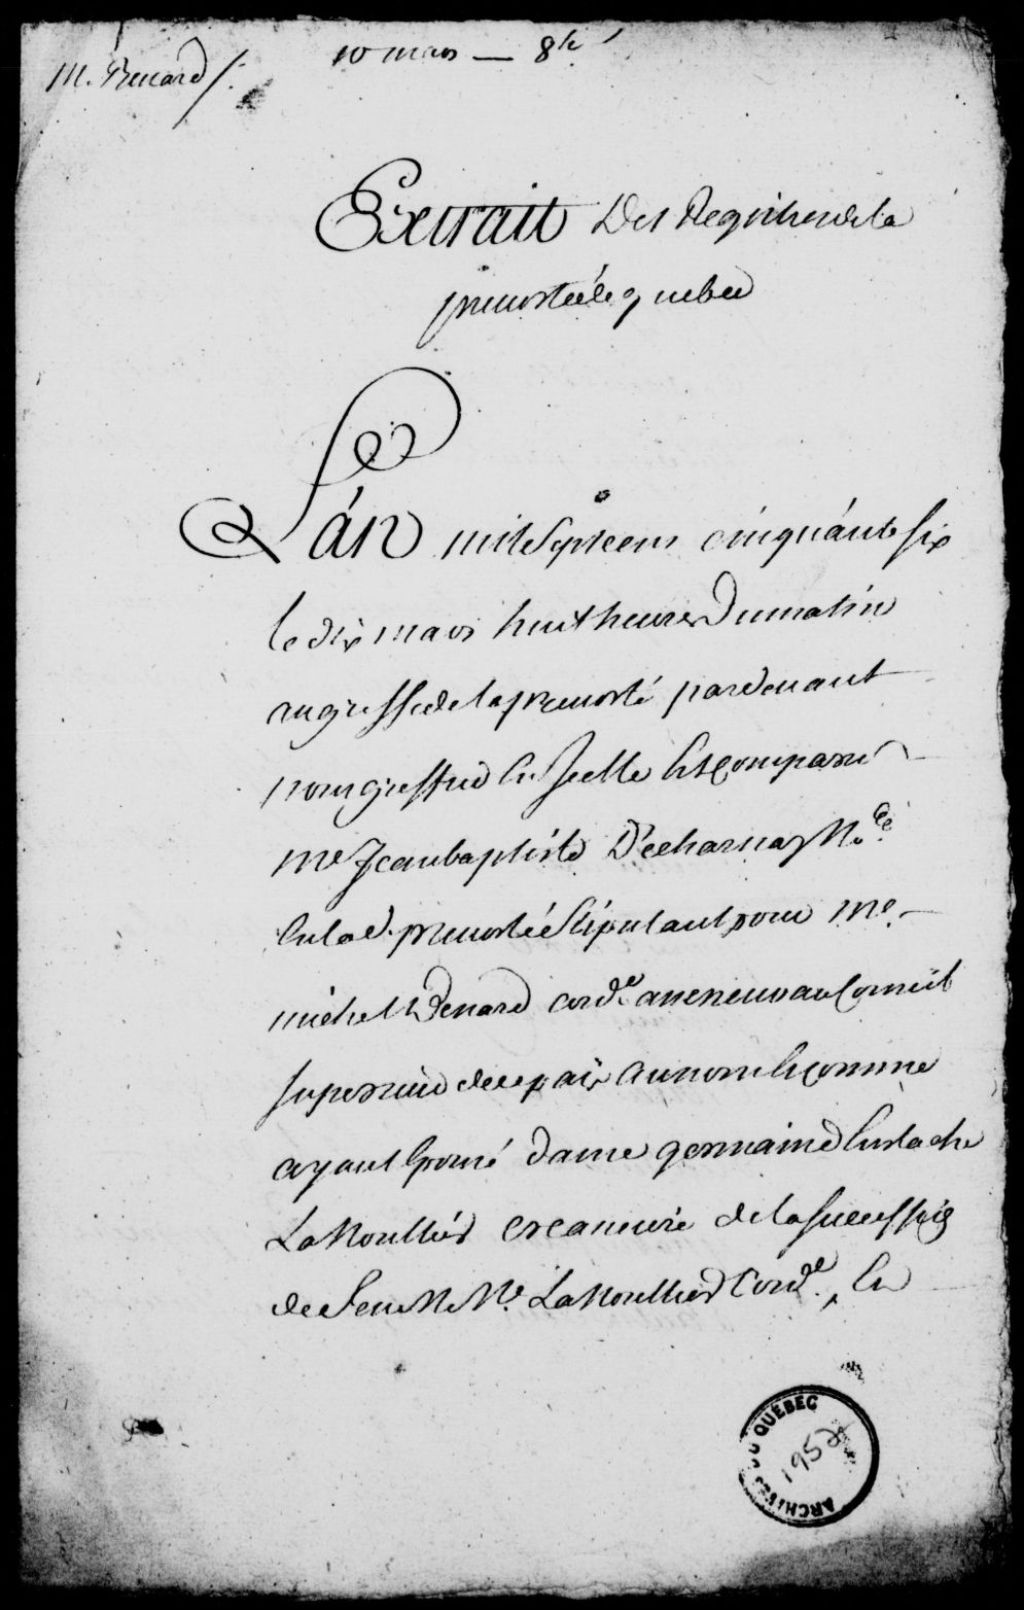 M. Renard /.
10 mars — 8h
Extrait Des Registres de la
prevosté de quebec
L'an mil sept cent cinquante six
le dix mars huit heures du matin
au greffe de la prevosté pardevant
nous greffier en Icelle Est comparu
Me Jean baptiste Decharnay N.re
en lad. prevosté Stipulant pour Me
michel Benard cons.er au Conseil
superieur de ce païs au nom et comme
ayant Epousé dame germaine Eustache
LaNoullier creanciere de la succession
de feu M.e LaNoullier Cons.er, En
ARCHIVES DU QUÉBEC
195